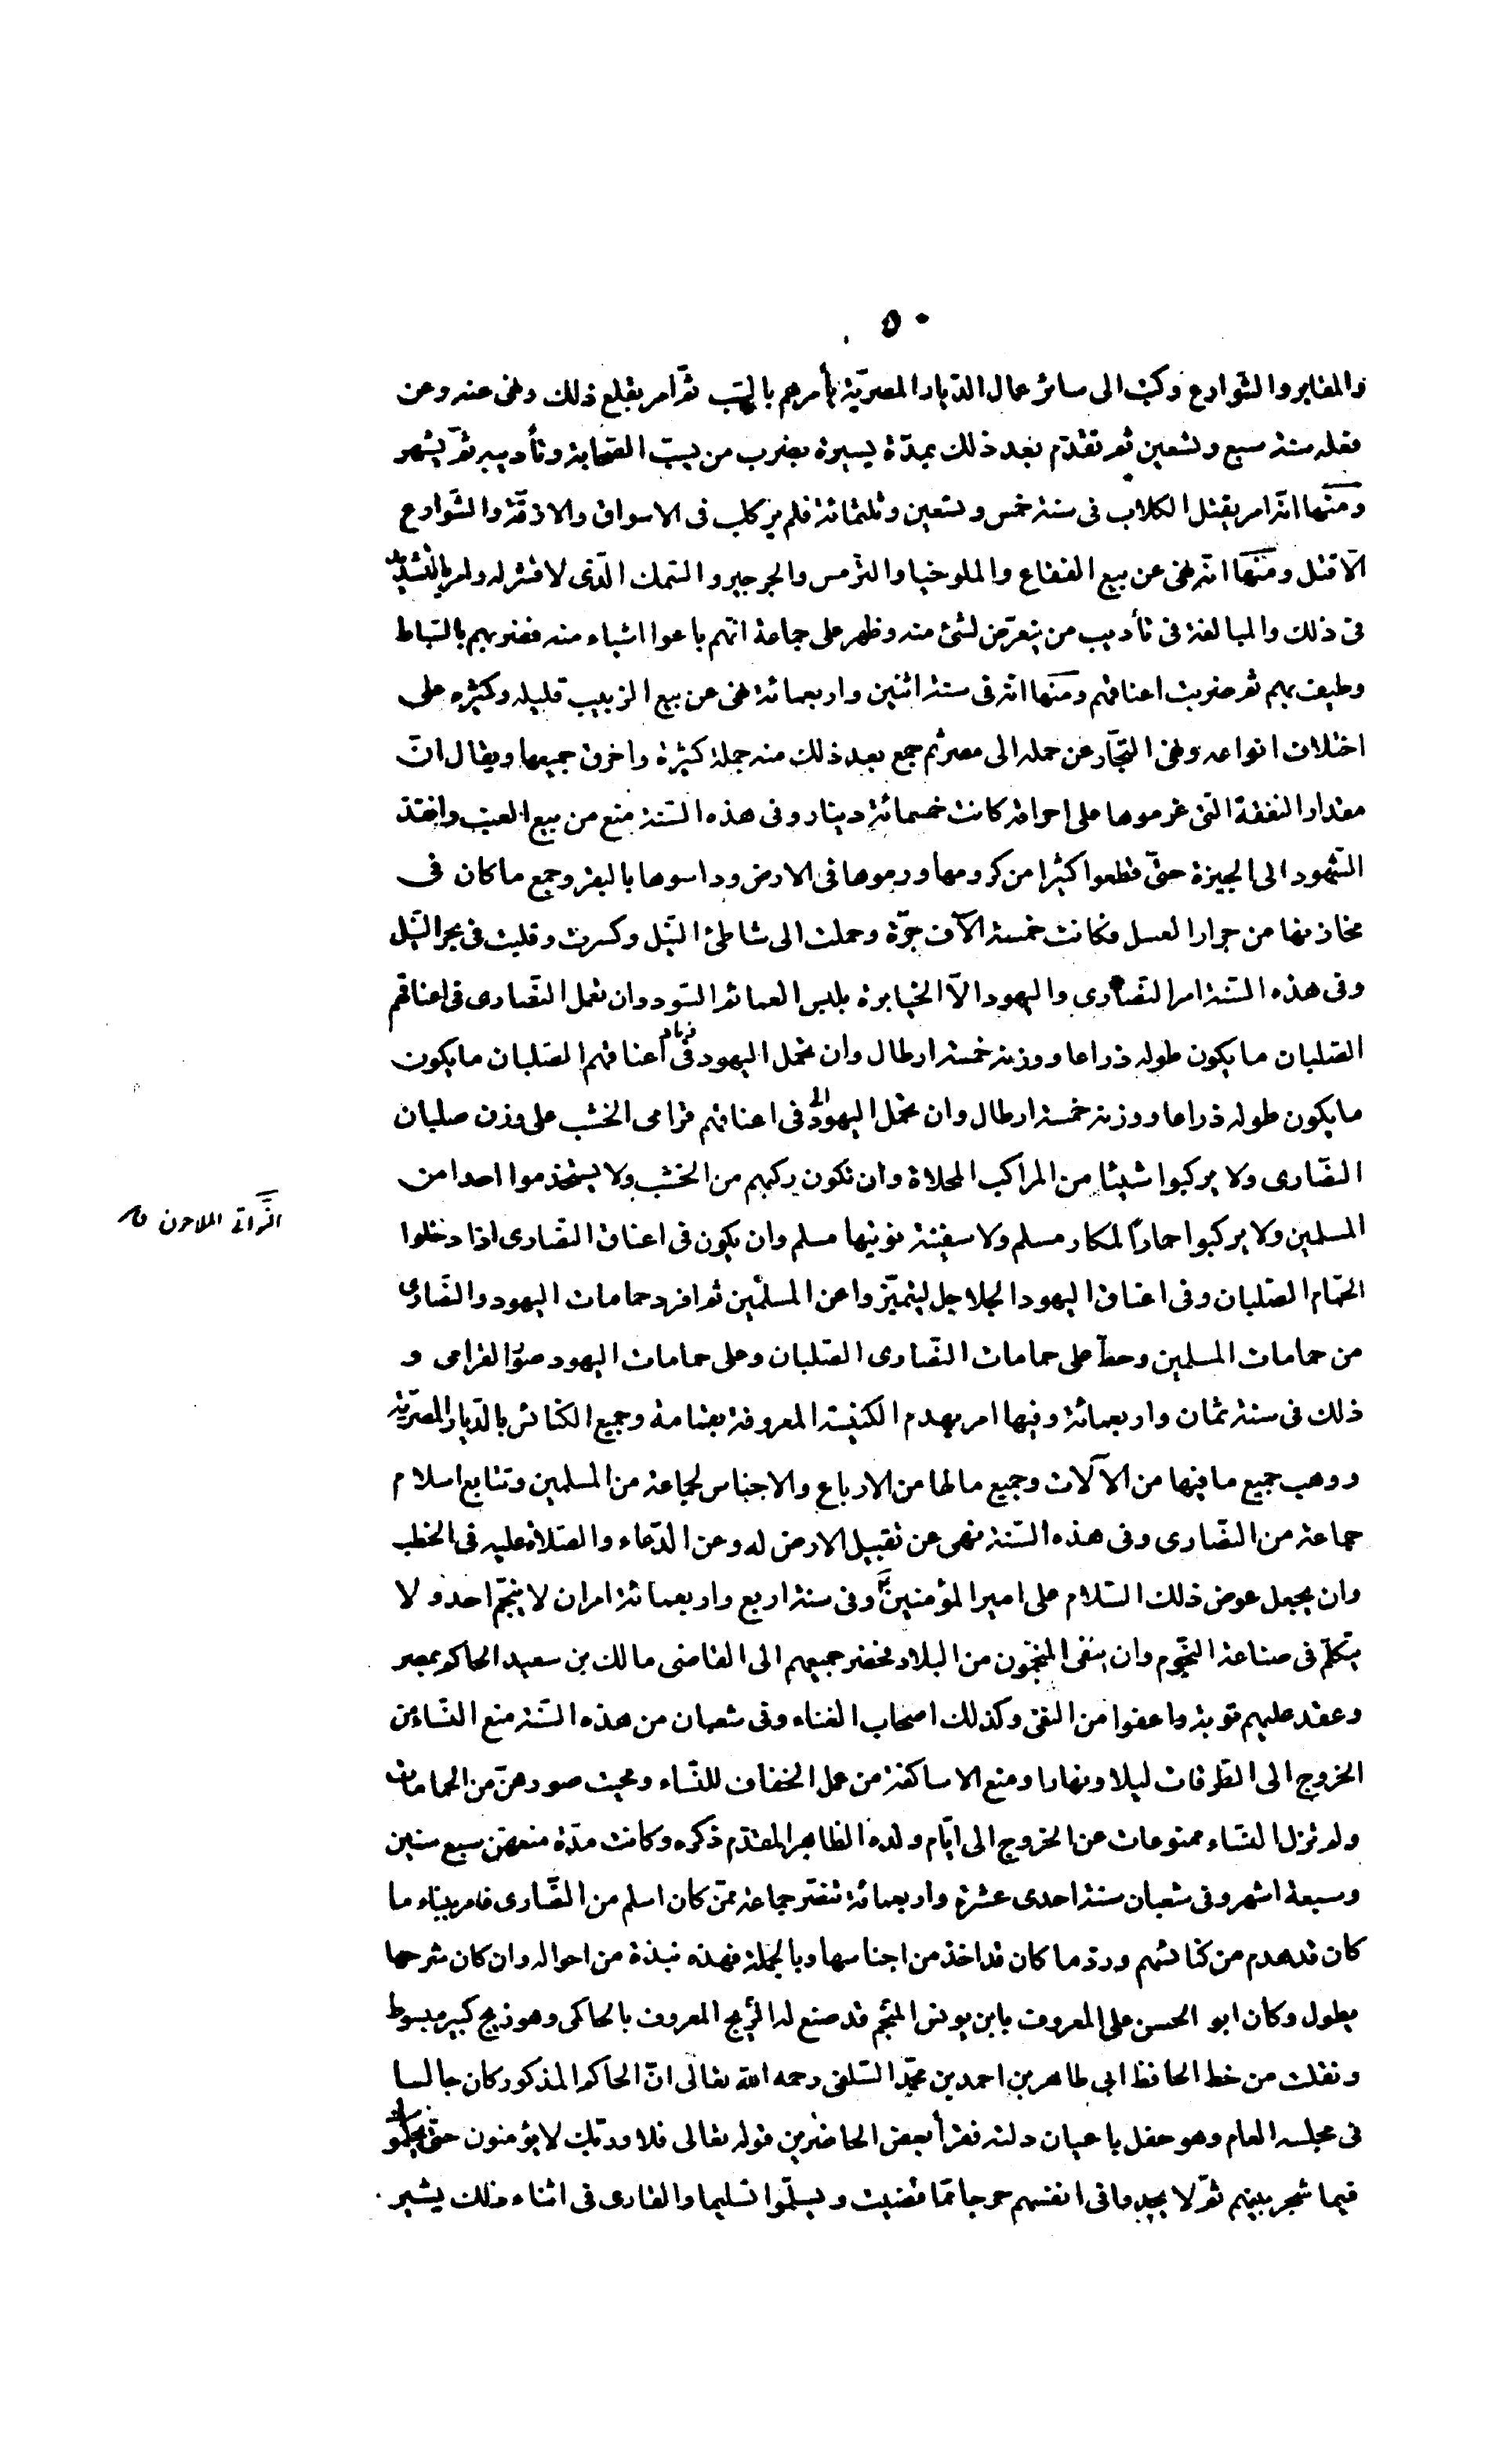 ٥٠
والمقابر والشوارع وكتب الى سائر عمال الديار المصريّة يأمرهم بالسّب ثمّ امر بقلع ذلك ونهى عنه وعن
فعله سنة سبع وتسعين ثم تقدّم بعد ذلك بمدّة يسيرة بضرب من يسبّ الصّحابة وتأديبه ثمّ يشهر
ومنها انّه امر بقتل الكلاب فى سنة خمس وتسعين وثلثمائة فلم ير كلب فى الاسواق والازقّة والشّوارع
الّا قتل ومنها انّه نهى عن بيع الفقاع والملوخيا والترمس والجرجير والسّمك الّذى لا قشر له وامر بالتشديد
فى ذلك والمبالغة فى تأديب من يتعرّض لشئ منه وظهر على جماعة انّهم باعوا اشياء منه فضربهم بالسّياط
وطيف بهم ثم ضربت اعناقهم ومنها انّه فى سنة اثنين واربعمائة نهى عن بيع الزبيب قليله وكثيره على
اختلاف انواعه ونهى التجّار عن حمله الى مصر ثم جمع بعد ذلك منه جملة كثيرة واحرق جميعها ويقال انّ
مقدار النفقة التى غرموها على احراقه كانت خمسمائة دينار وفى هذه السّنة منع من بيع العنب وانفذ
الشّهود الى الجيزة حتّى قطعوا كثيرا من كرومها ورموها فى الارض وداسوها بالبقر وجمع ما كان فى
مخازنها من جرار العسل فكانت خمسة الآف جرّة وحملت الى شاطئ النّيل وكسرت وقلبت فى بحر النّيل
وفى هذه السّنة امر النصارى واليهود الّا الخيابرة بلبس العمائم السّود وان تعمل النصارى فى اعناقهم
الصّلبان ما يكون طوله ذراعا ووزنه خمسة ارطال وان تحمل اليهود فى اعناقهم الصّلبان ما يكون
ما يكون طوله ذراعا ووزنه خمسة ارطال وان تحمل اليهود فى اعناقهم قرامى الخشب على وزن صلبان
النصّارى ولا يركبوا شيئا من المراكب المحلاة وان تكون ركبهم من الخشب ولا يستخدموا احدا من
المسلمين ولا يركبوا حمارًا لمكار مسلم ولا سفينة نوتيها مسلم وان يكون فى اعناق النصّارى اذا دخلوا
الحمّام الصّلبان وفى اعناق اليهود الجلاجل ليتميّزوا عن المسلمين ثم افرد حمامات اليهود والنصّارى
من حمامات المسلمين وحط على حمامات النصّارى الصّلبان وعلى حمامات اليهود صور القرامى و
ذلك فى سنة ثمان واربعمائة وفيها امر بهدم الكنيسة المعروفة بقمامة وجميع الكنائس بالدّيار المصريّة
ووهب جميع ما فيها من الآلات وجميع ما لها من الارباع والاجناس لجماعة من المسلمين وتتابع اسلام
جماعة من النصّارى وفى هذه السّنة نهى عن تقبيل الارض له وعن الدّعاء والصّلاة عليه فى الخطب
وان يجعل عوض ذلك السّلام على امير المؤمنين وفى سنة اربع واربعمائة امر ان لا ينجّم احد ولا
يتكلّم فى صناعة النّجوم وان ينفى المنجّمون من البلاد فحضر جميعهم الى القاضى مالك بن سعيد الحاكم بمصر
وعقد عليهم توبة واعفوا من النفى وكذلك اصحاب الغناء وفى شعبان من هذه السّنة منع النّساء من
الخروج الى الطّرقات ليلا ونهارا ومنع الاساكفة من عمل الخفاف للنّساء ومحيت صورهنّ من الحمامات
ولم تزل النسّاء ممنوعات عن الخروج الى ايّام ولده الظاهر المقدّم ذكره وكانت مدّة منعهنّ سبع سنين
وسبعة اشهر وفى شعبان سنة احدى عشرة واربعمائة تنصّر جماعة ممّن كان اسلم من النصّارى فامر ببناء ما
كان قد هدم من كنائسهم وردّ ما كان قد اخذ من اجناسها وبالجملة فهذه نبذة من احواله وان كان شرحها
يطول وكان ابو الحسن على المعروف بابن يونس المنجّم قد صنع له الزّيج المعروف بالحاكمى وهو زيج كبير مبسوط
ونقلت من خط الحافظ ابى طاهر بن احمد بن محمّد السّلفى رحمه الله تعالى انّ الحاكم المذكور كان جالسا
فى مجلسه العام وهو حفل باعيان دولته فقرأ بعض الحاضرين قوله تعالى فلا وربّك لا يؤمنون حتّى يحكّموك
فيما شجر بينهم ثمّ لا يجدوا فى انفسهم حرجا ممّا قضيت ويسلّموا تسليما والقارى فى اثناء ذلك يشير
النّواتى الملاحون